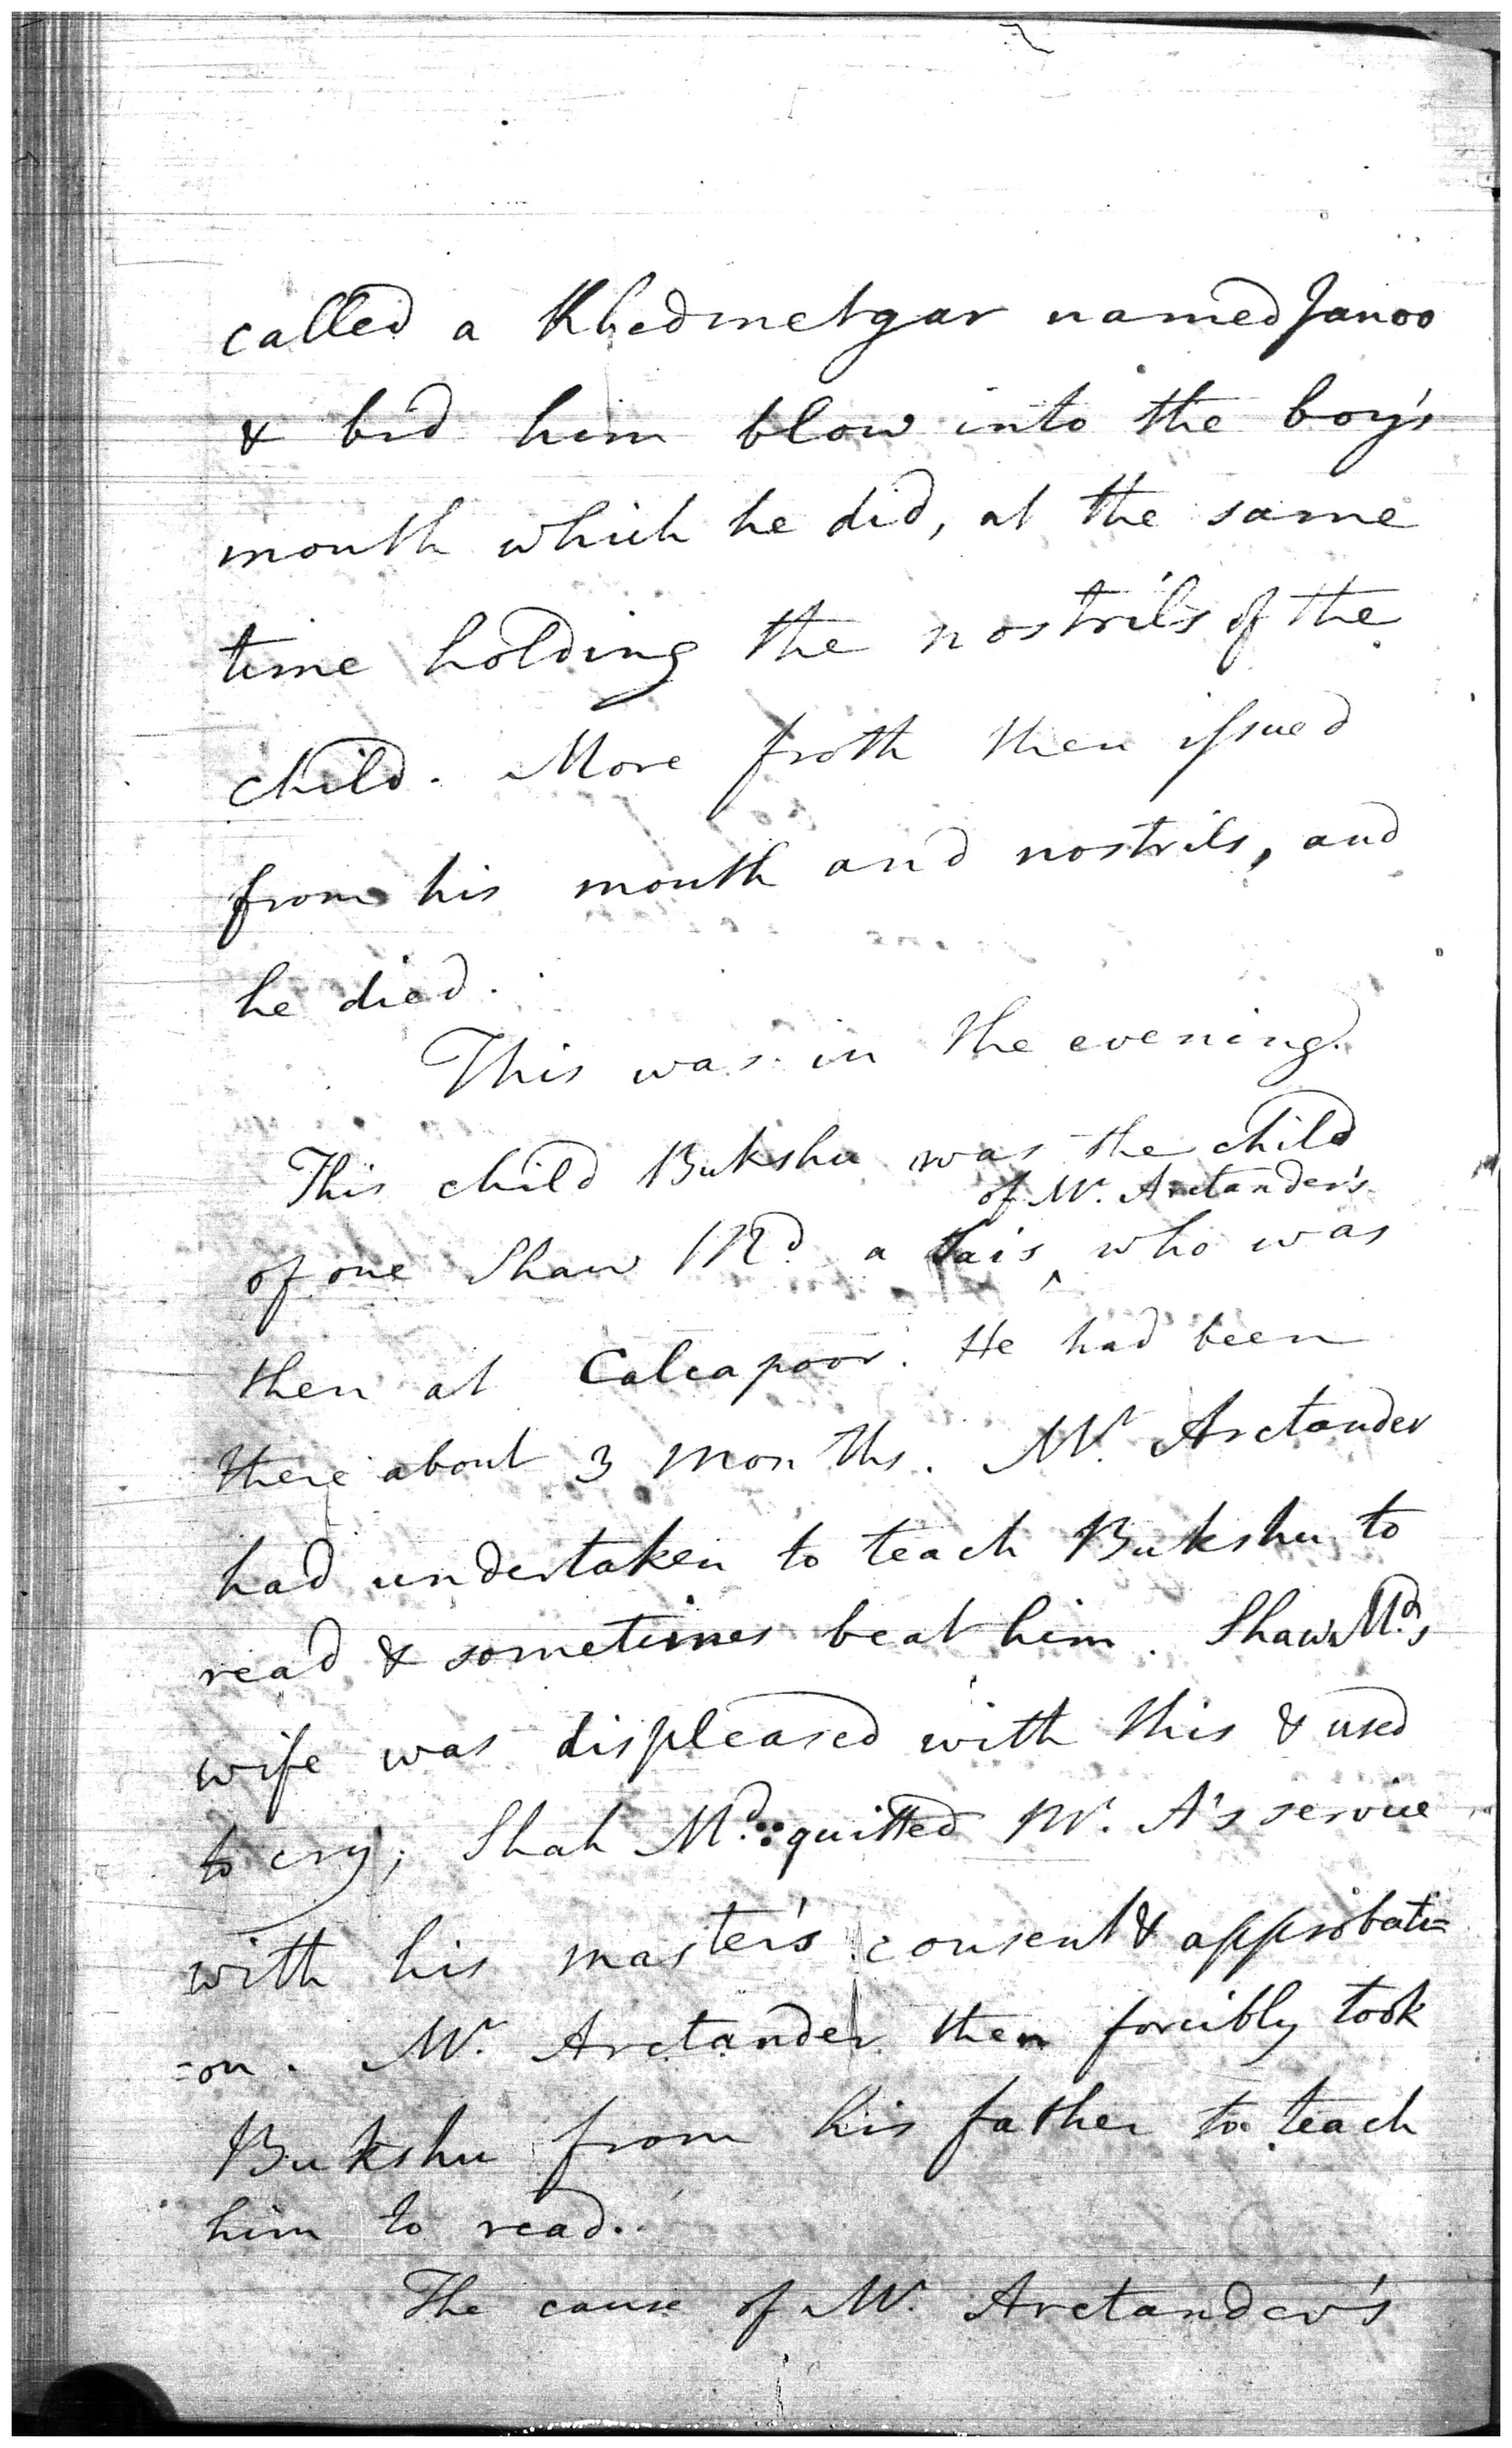 called a Khedmetgar named Janoo
& bid him blow into the boy's
mouth which he did, at the same
time holding the nostrils of the
child. More froth then issued
from his mouth and nostrils, and
he died.
This was in the evening.
This child Bukshu was the child
of Mr. Arctander's
of one Shaw Md. a Sais ^ who was
then at Calcapoor. He had been
there about 3 months. Mr. Arctander
had undertaken to teach Bukshu to
read & sometimes beat him. Shaw Md.s
wife was displeased with this & used
to cry; Shah Md. quitted Mr. A's service
with his master's consent & approbati=
=on. Mr. Arctander then forcibly took
Bukshu from his father to teach
him to read.
The cause of Mr. Arctander's